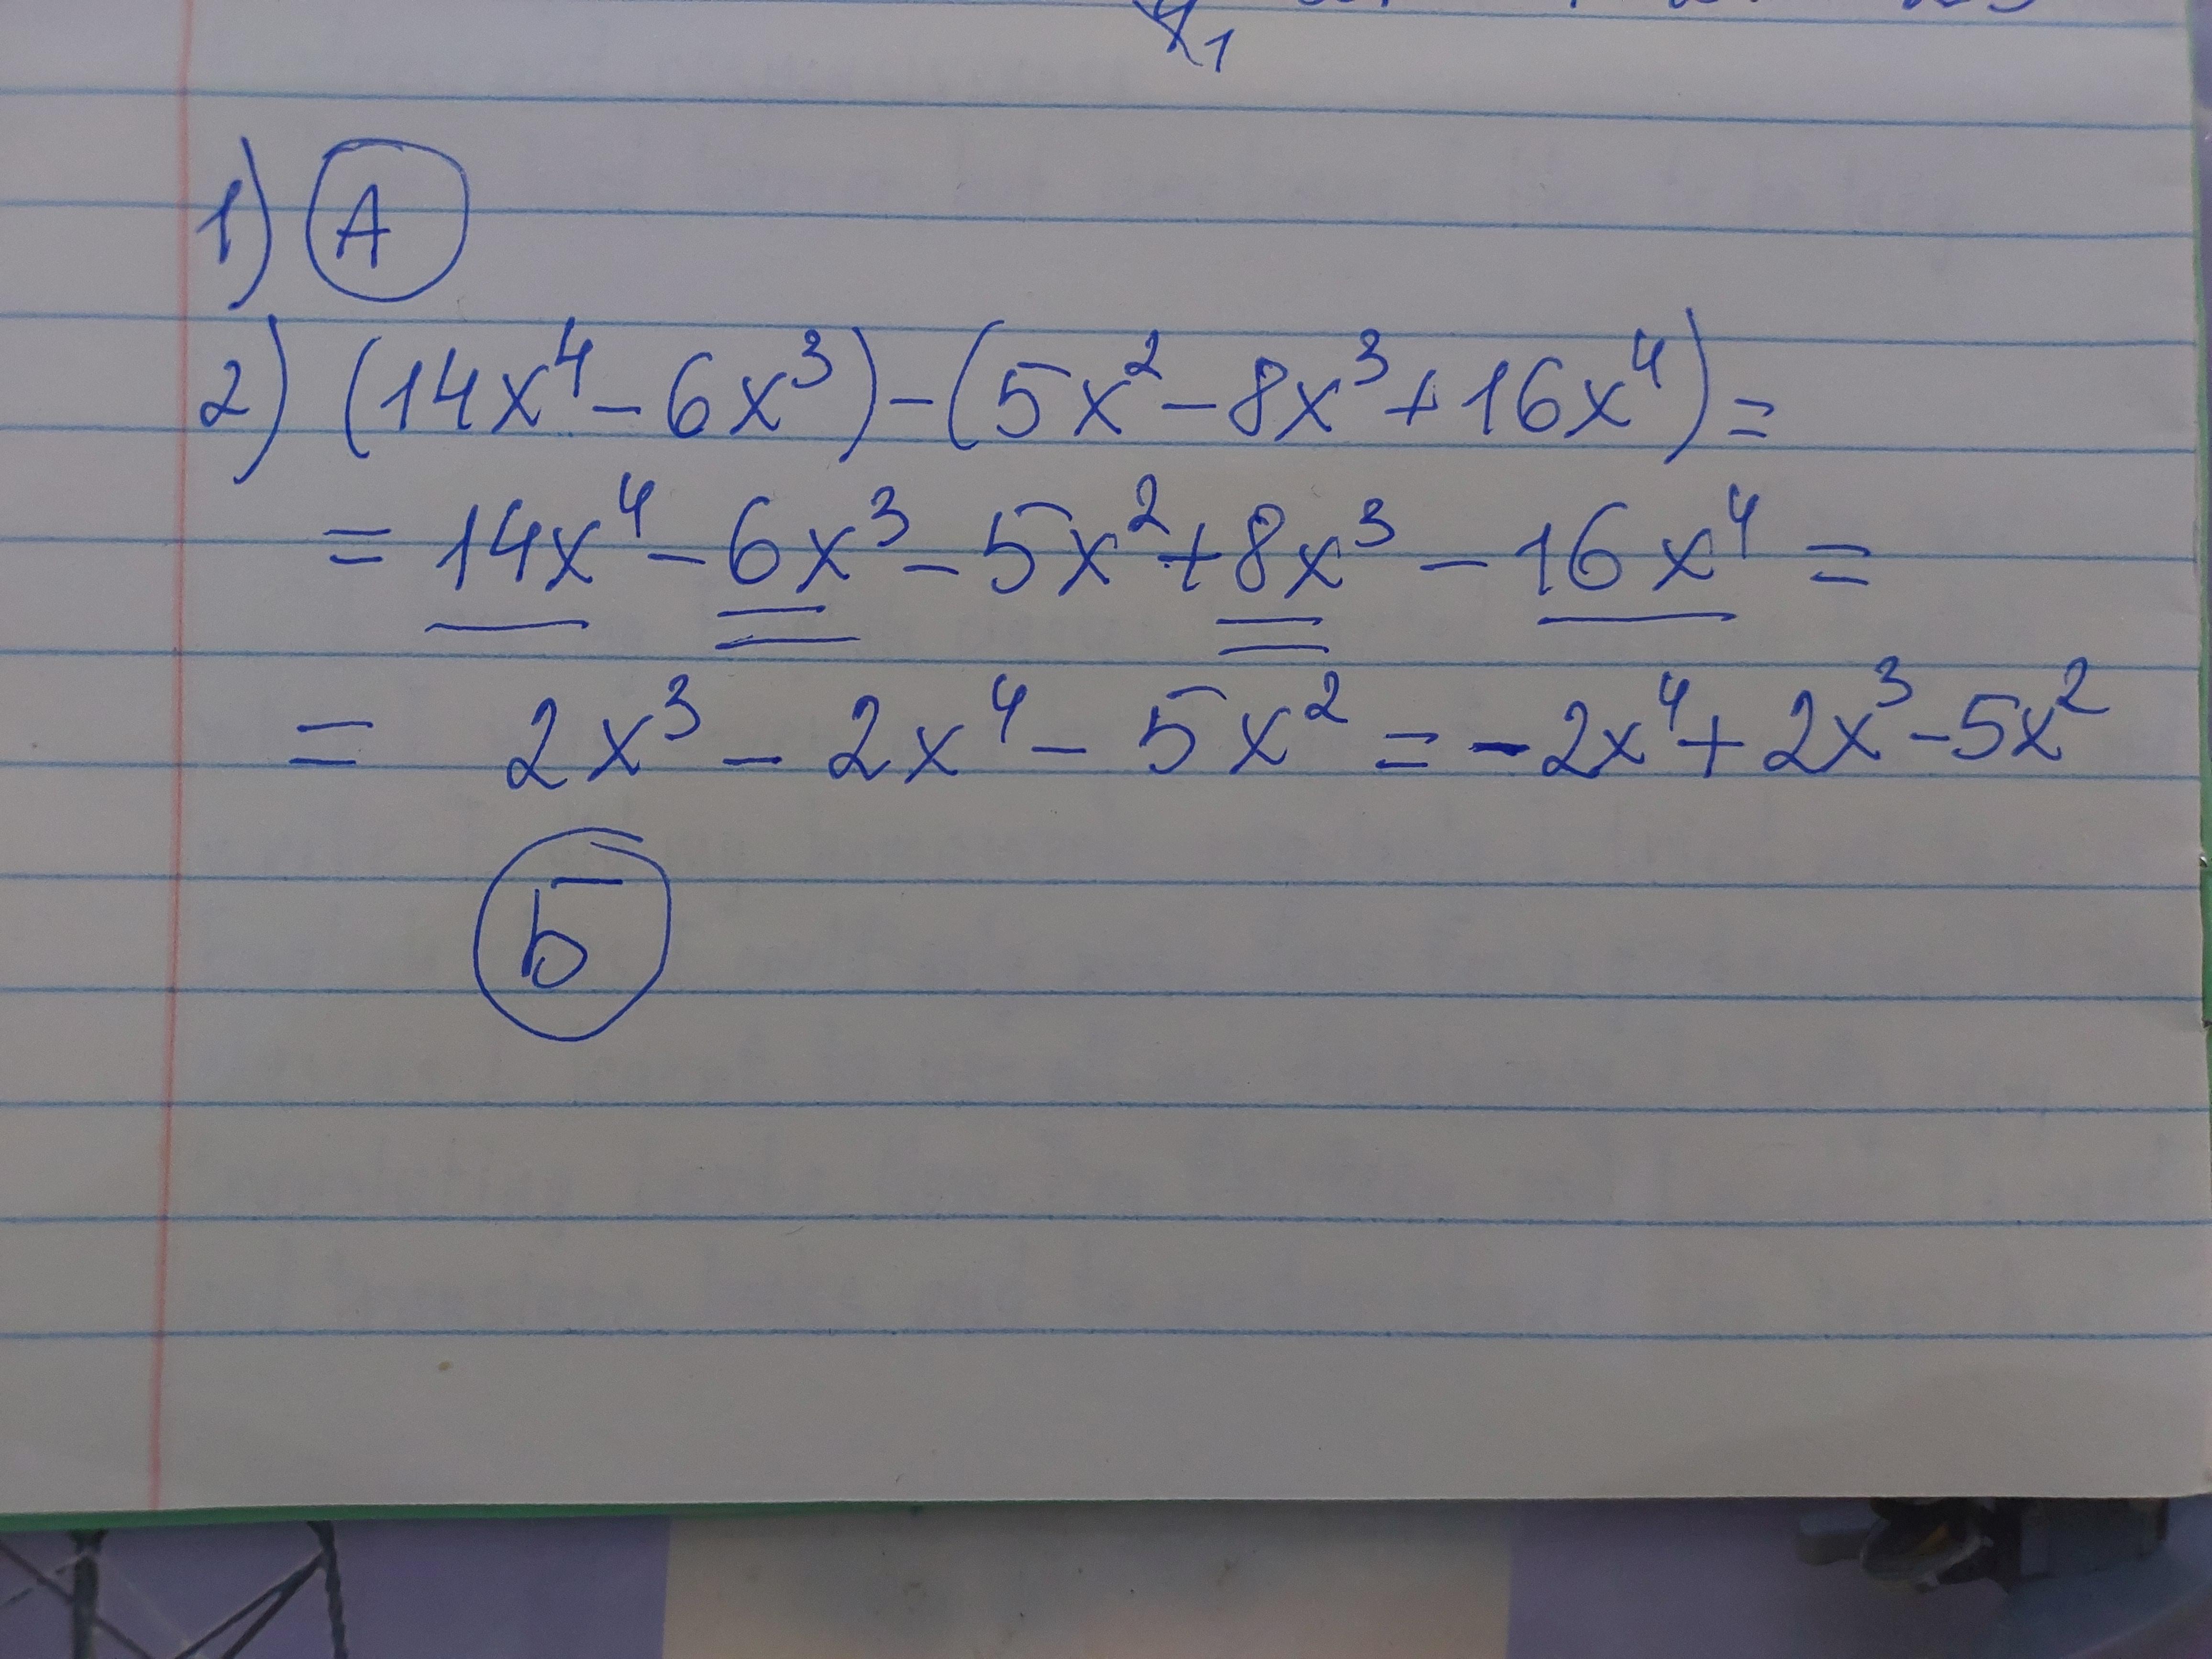 1) А
2) (14x⁴ - 6x³) - (5x² - 8x³ + 16x⁴) =
= 14x⁴ - 6x³ - 5x² + 8x³ - 16x⁴ =
= 2x³ - 2x⁴ - 5x² = -2x⁴ + 2x³ - 5x²
Б